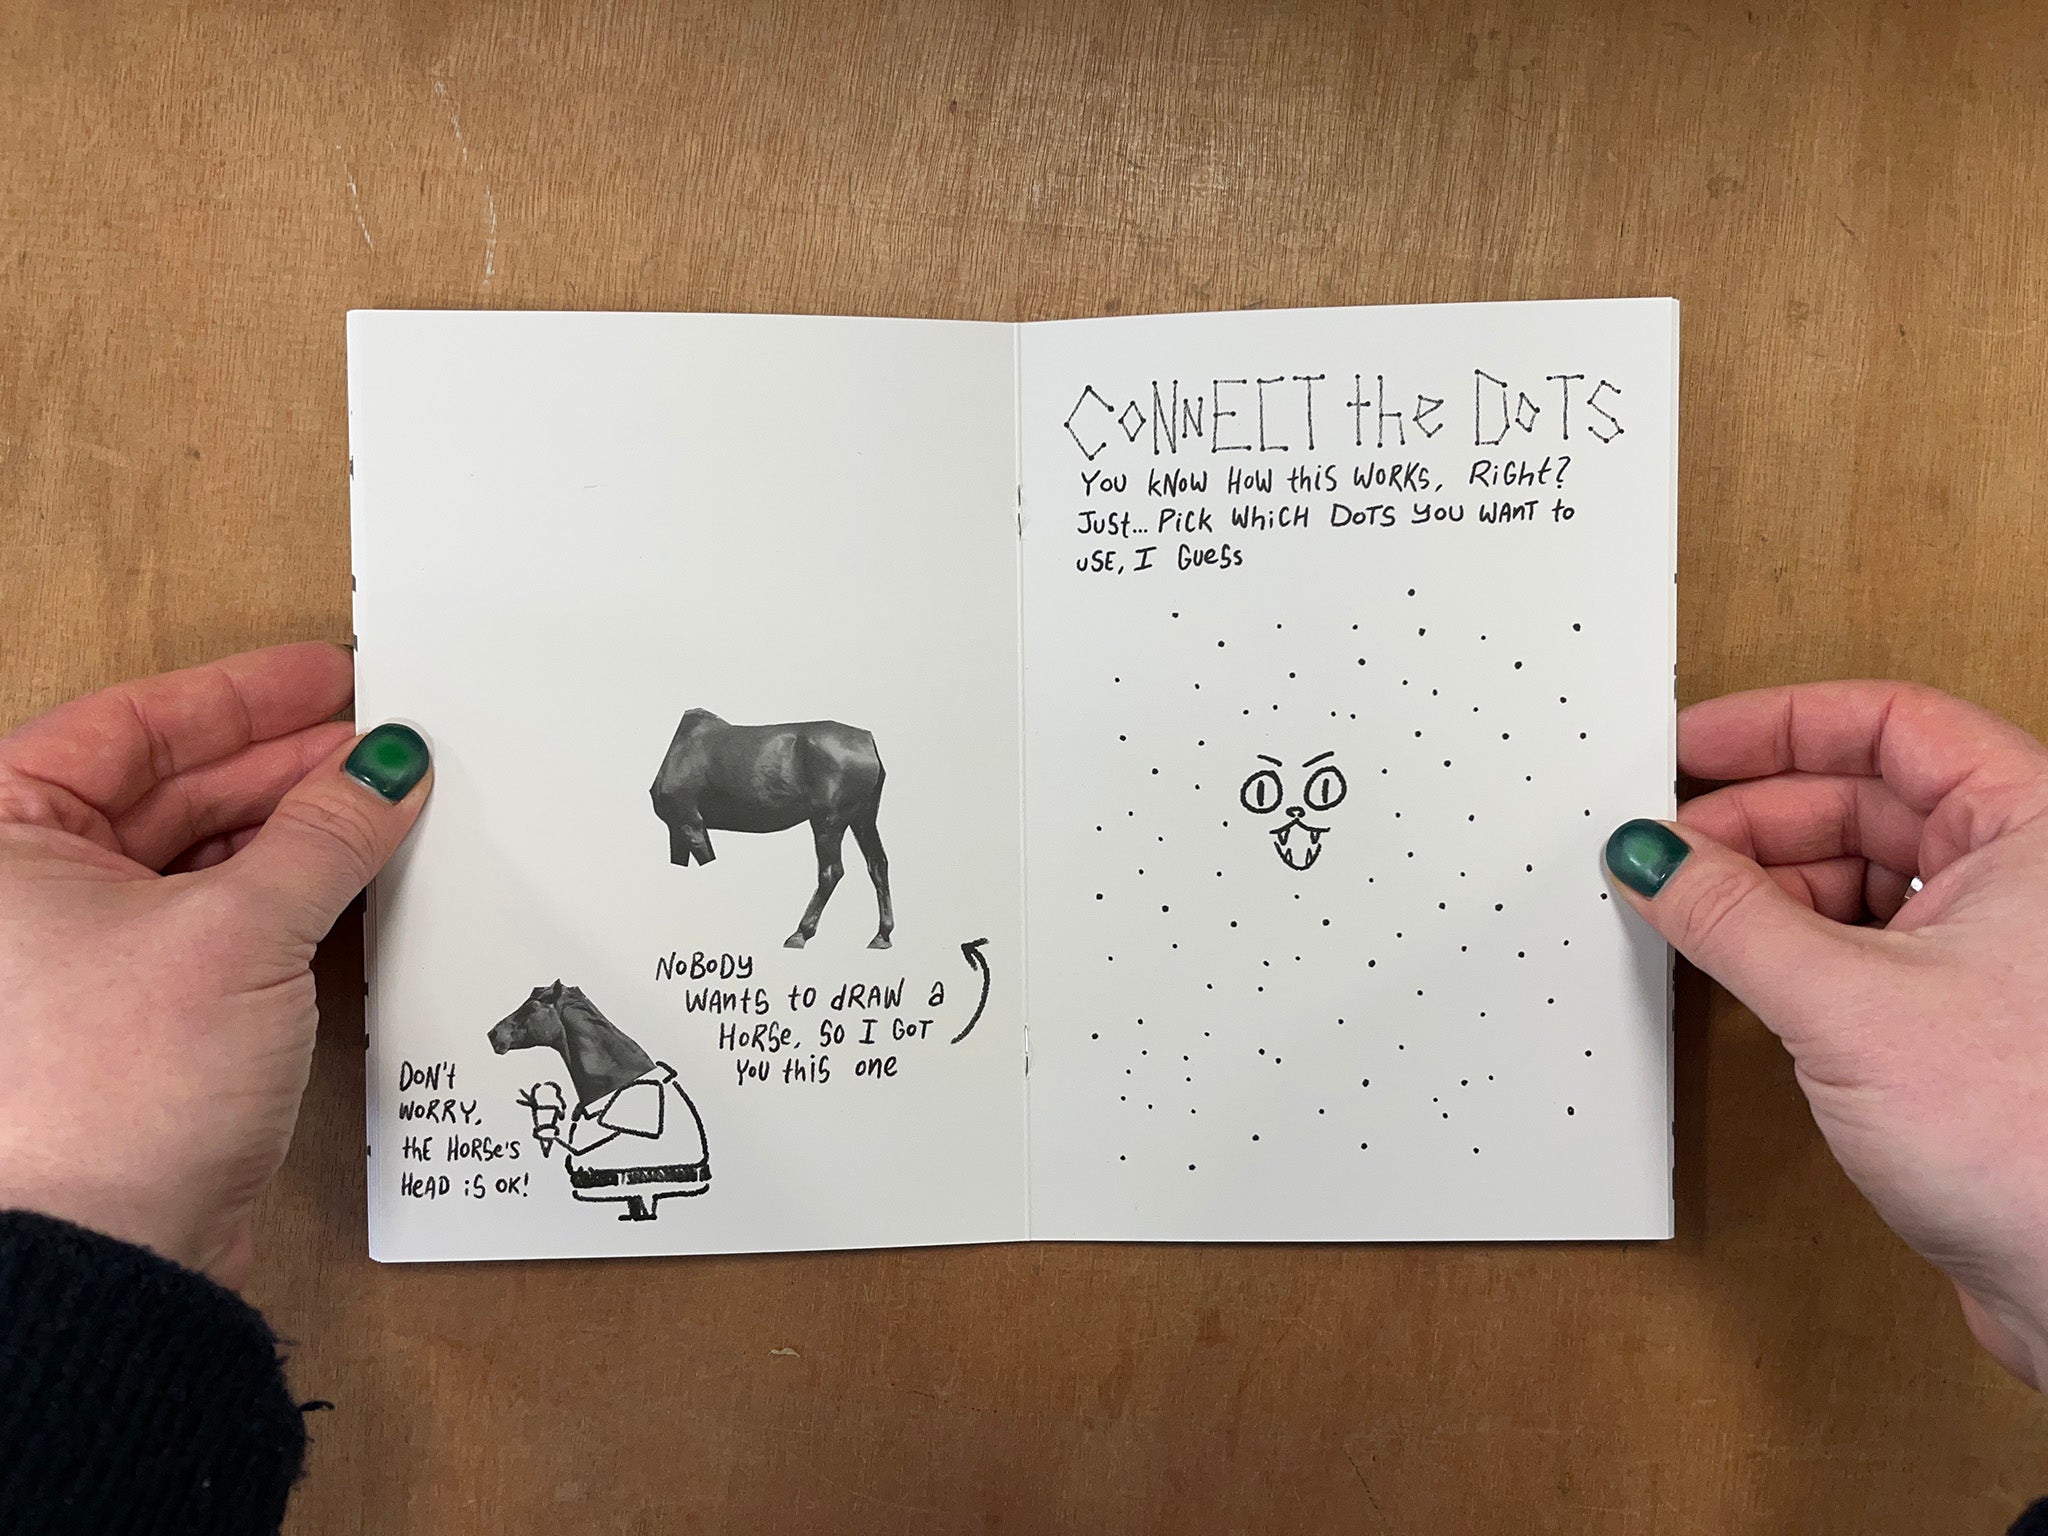 NOBODY
WANTS tO dRAW a
HORSe, SO I GOT
YOU thiS one
DON't
WORRY,
thE HORSe's
HeAD iS OK!
CoNNECT the DoTS
YOU kNOW HOW thiS WORKS, RiGht?
JuSt... PiCK WhiCH DOTS YOU WAnT to
uSE, I GueSS